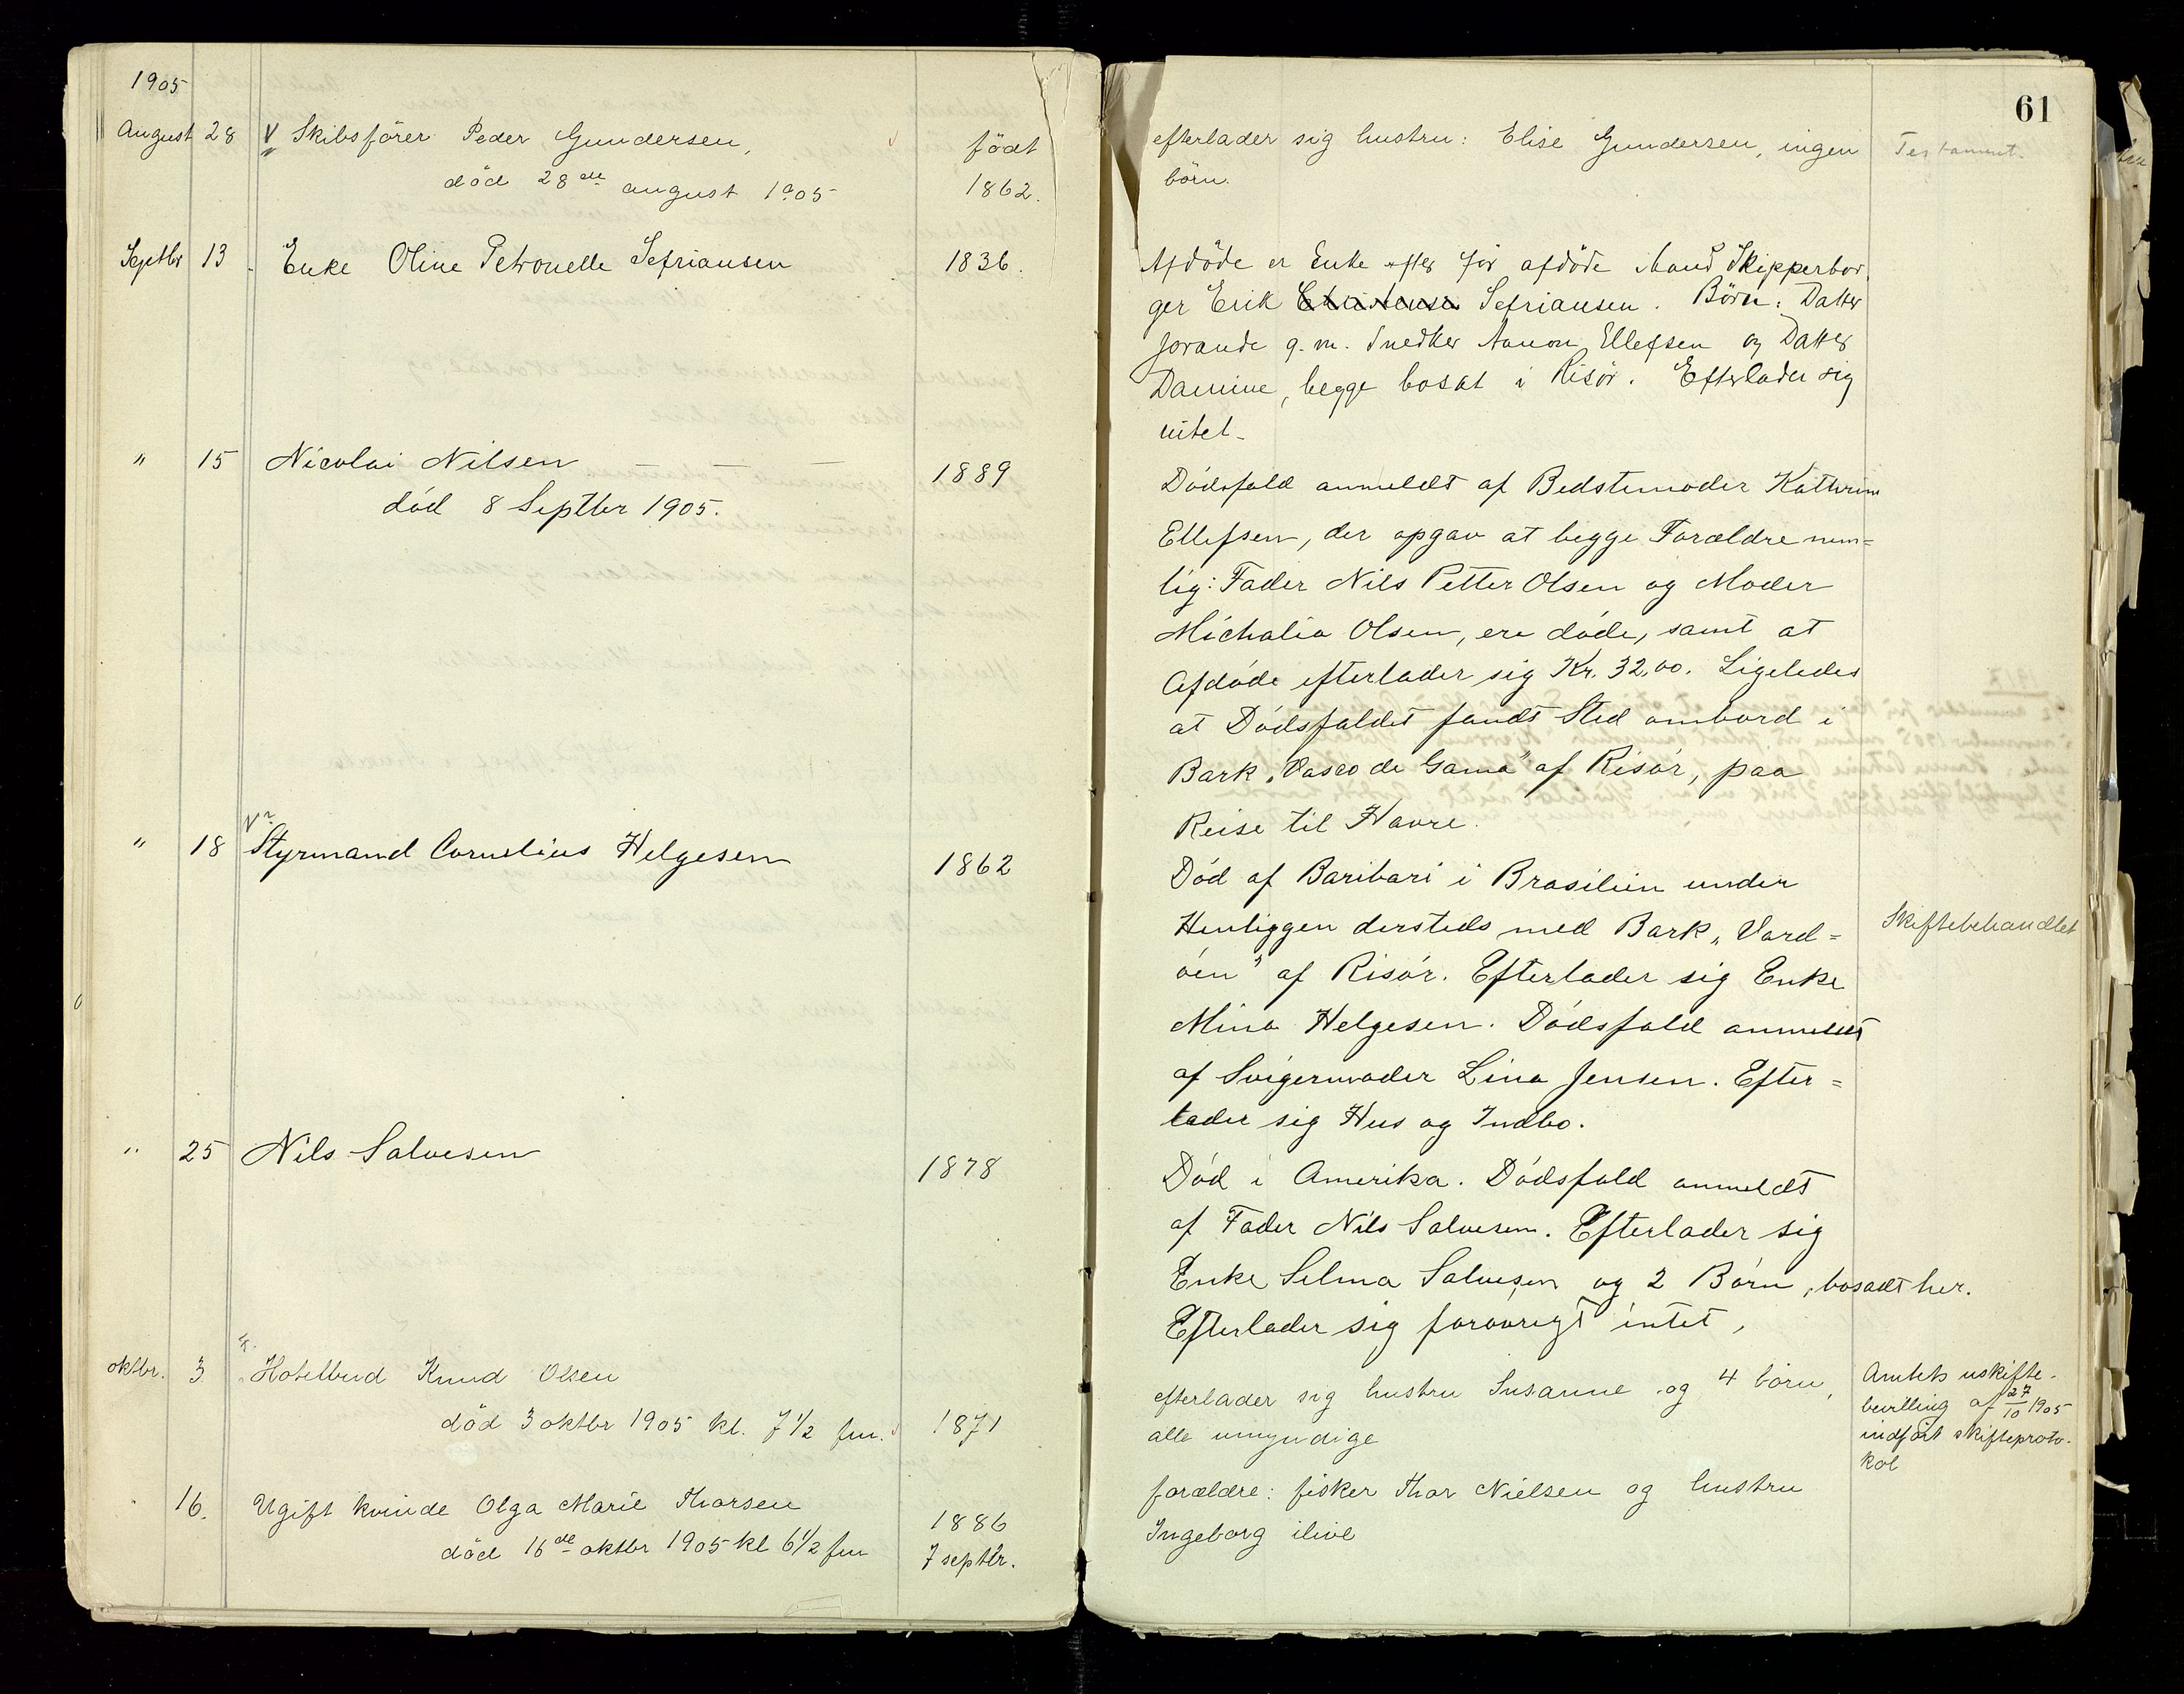 1905
August 28 Skibsförer Peder Gundersen, födt
död 28de august 1905 1862.
Septbr 13 Enke Oline Petronelle Sefriansen 1836.
" 15 Nicolai Nilsen — — — 1889
död 8 Septbr 1905.
" 18 Styrmand Cornelius Helgesen 1862
" 25 Nils Salvesen 1878
oktbr. 3 Hotelbud Knud Olsen
död 3 oktbr 1905 kl. 7 1/2 fm. 1871
16. Ugift kvinde Olga Marie Thorsen 1886
död 16de oktbr 1905 kl 6 1/2 fm 7 septbr.
61
efterlader sig hustru: Elise Gundersen, ingen Testament.
börn.
Afdöde er Enke efter før afdöde Mand Skipperbor-
ger Erik Sefriansen. Börn: Datter
Jorande g. m. Snedker Aanon Ellefsen og Datter
Damine, begge bosat i Risör. Efterlader sig
intet.
Dödsfald anmeldt af Bedstemoder Kathrine
Ellefsen, der opgav at begge Forældre nem=
lig: Fader Nils Petter Olsen og Moder
Michalia Olsen, ere döde, samt at
Afdöde efterlader sig Kr. 32,00. Ligeledes
at Dödsfaldet fandt Sted ombord i
Bark „Vasco de Gama" af Risör, paa
Reise til Havre.
Död af Baribari i Brasilien under
Henliggen dersteds med Bark „Vard= Skiftebehandlet
öen" af Risör. Efterlader sig Enke
Mina Helgesen. Dödsfald anmeldt
af Svigermoder Lina Jensen. Efter=
lader sig Hus og Indbo.
Död i Amerika. Dödsfald anmeldt
af Fader Nils Salvesen. Efterlader sig
Enke Selma Salvesen og 2 Börn, bosadt her.
Efterlader sig forövrigt intet,
efterlader sig hustru Susanne og 4 börn,
alle umyndige
Amtets uskifte-
bevilling af 27/10 1905
indfört skifteproto-
kol
forældre: fisker Thor Nielsen og hustru
Ingeborg ilive